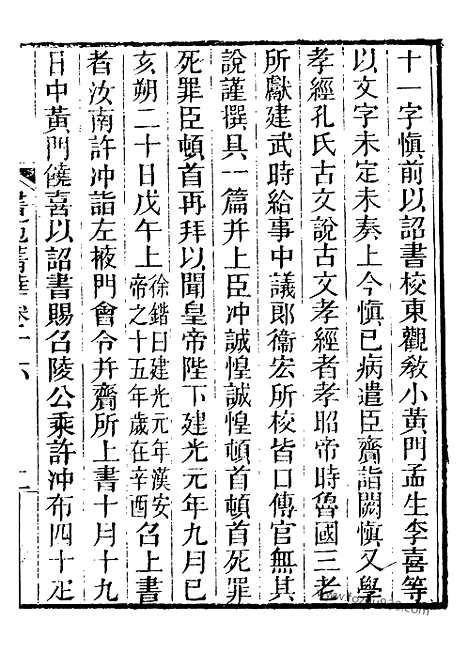 十一字慎前以詔書校東觀教小黃門孟生李喜等
以文字未定未奏上今慎已病遣臣齎詣闕慎又學
孝經孔氏古文說古文孝經者孝昭帝時魯國三老
所獻建武時給事中議郎衞宏所校皆口傳官無其
說謹撰具一篇并上臣沖誠惶誠惶頓首頓首死罪
死罪臣頓首再拜以聞皇帝陛下建光元年九月己
亥朔二十日戊午上徐鍇曰建光元年漢安帝之十五年歲在辛酉召上書
者汝南許沖詣左掖門會令并齎所上書十月十九
日中黃門饒喜以詔書賜召陵公乘許沖布四十疋
書苑菁華卷十六
二